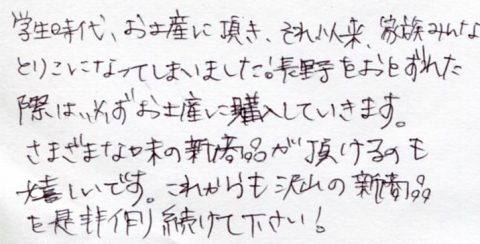 学生時代、お土産に頂き、それ以来、家族みんな
とりこになってしまいました。長野をおとずれた
際は必ずお土産に購入していきます。
さまざまな味の新商品が頂けるのも
嬉しいです。これからも沢山の新商品
を是非作り続けて下さい!